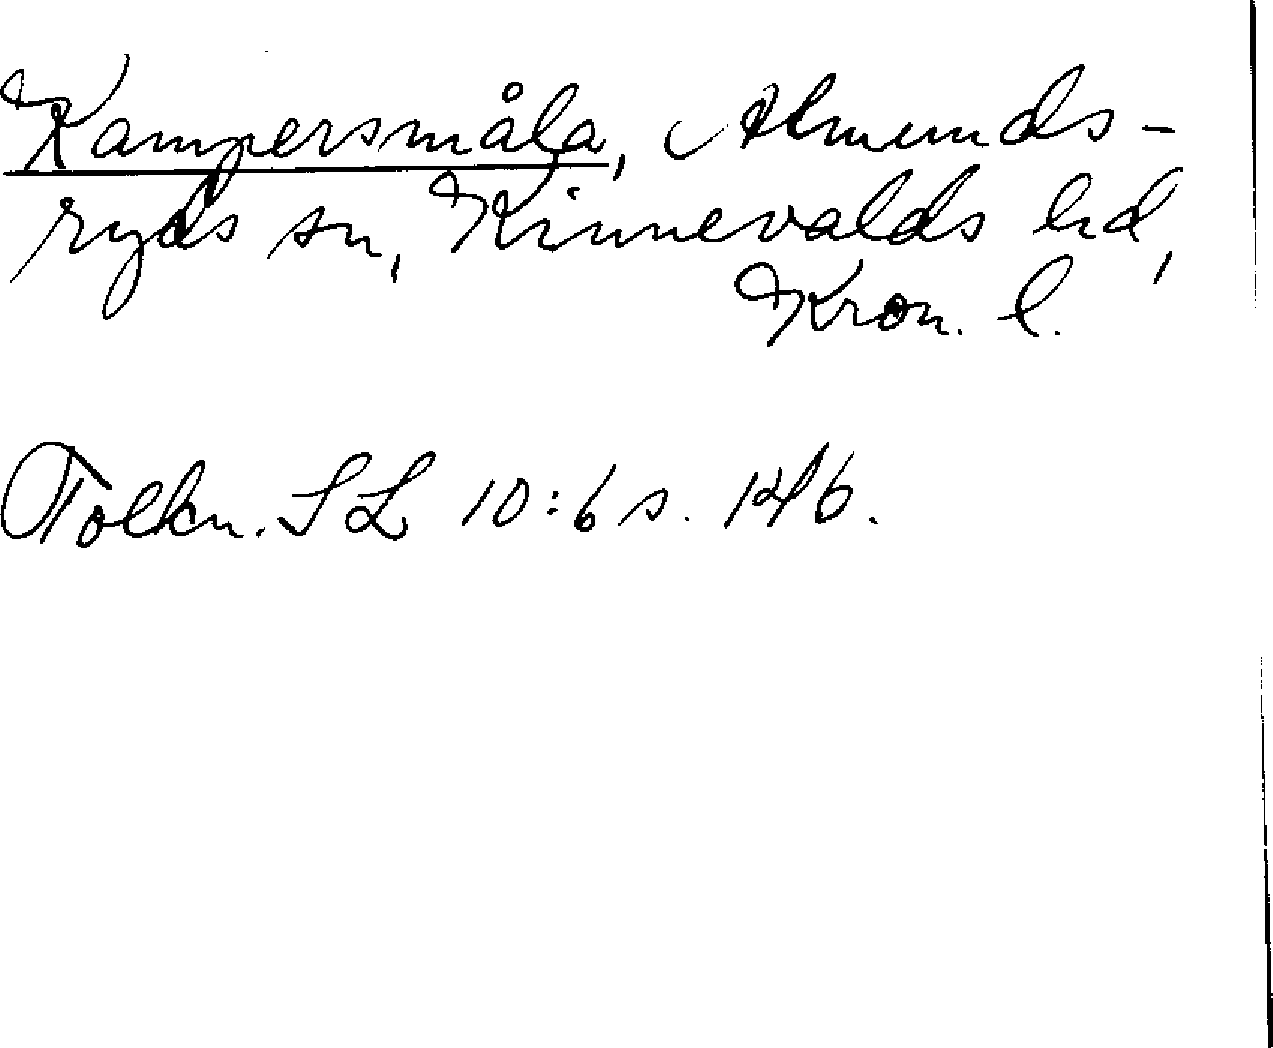 Kampersmåla, Almunds-
ryds sn, Kinnevalds hd,
Kron. l.
Tolkn. SL 10:6 s. 146.